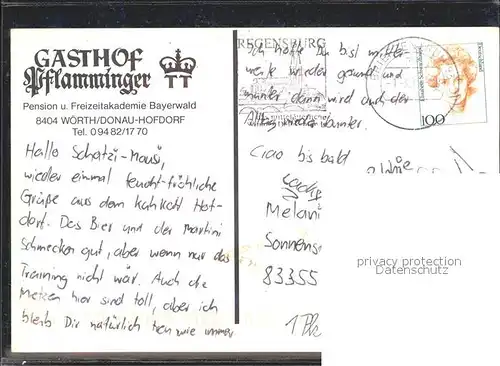 GASTHOF
Pflamminger
Pension u. Freizeitakademie Bayerwald
8404 WÖRTH/DONAU-HOFDORF
Tel. 0 94 82/17 70
Hallo Schatzi-Mausi,
wieder einmal feucht-fröhliche
Grüße aus dem Hof-
dorf. Das Bier und der Martini
schmecken gut, aber wenn nur das
Training nicht wär. Auch die
hier sind toll, aber ich
bleib Dir natürlich treu wie immer
REGENSBURG
Ich hoffe Du bist mittler-
weile wieder gesund und
munter dann wird auch der
Alltag wieder bunter.
Ciao bis bald
Deutschland
100
Melani
Sonnens
83355
privacy protection
Datenschutz